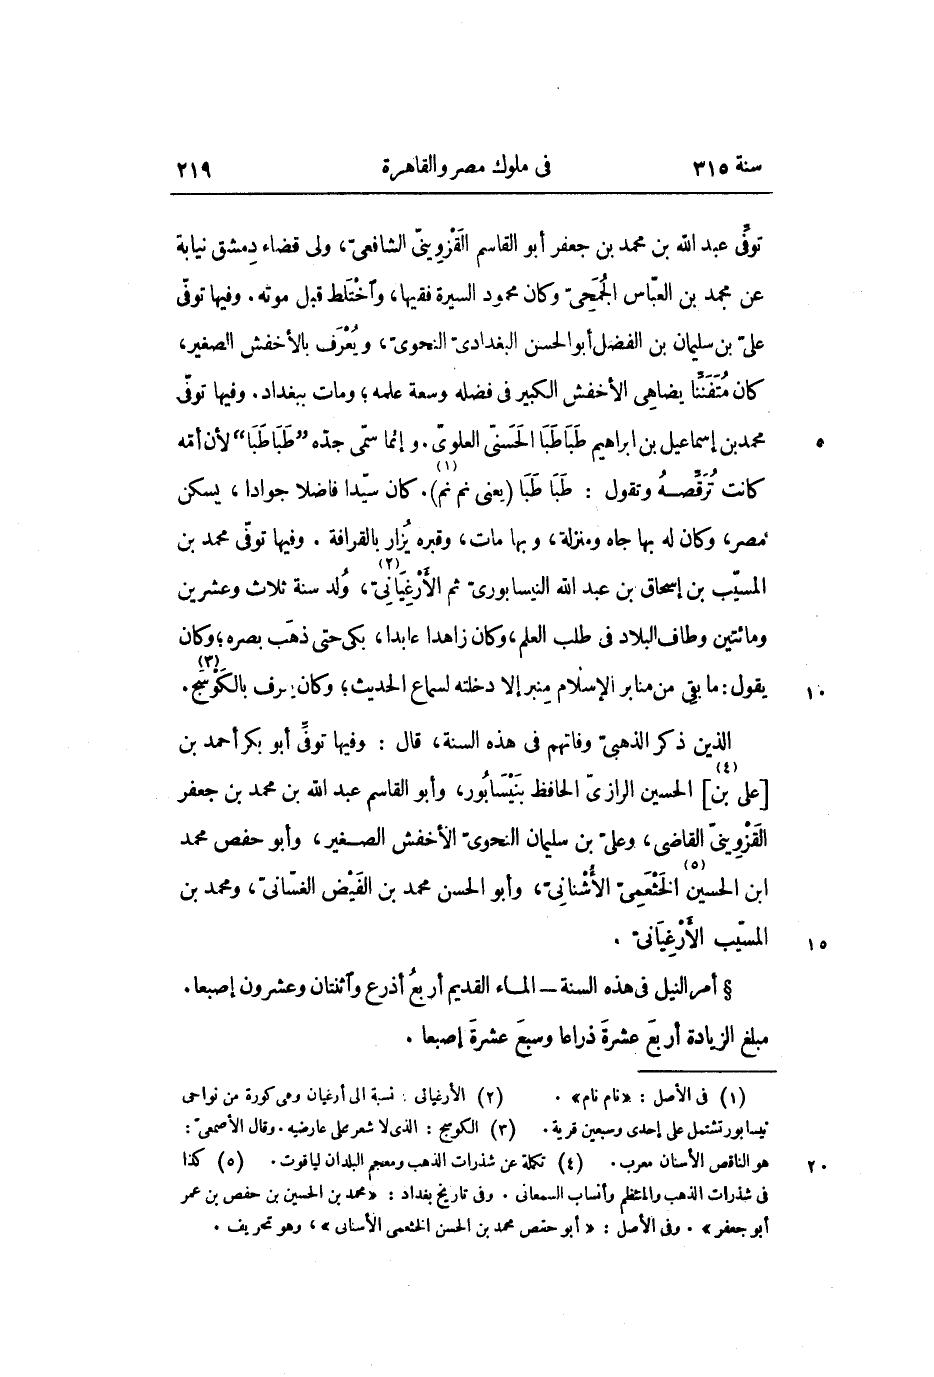 سنة ٣١٥ فى ملوك مصر والقاهرة ٢١٩
توفِّى عبد الله بن محمد بن جعفر أبو القاسم القَزْوِينىّ الشافعىّ، ولى قضاء دِمشق نيابة
عن محمد بن العبّاس الجُمَحِىّ وكان محمود السيرة فقيها، وٱخْتَلط قبل موته. وفيها توفّى
علىّ بن سليمان بن الفضل أبو الحسن البغدادىّ النحوىّ، ويُعْرَف بالأخفش الصغير،
كان مُتَفَنِّنا يضاهى الأخفش الكبير فى فضله وسعة علمه؛ ومات ببغداد. وفيها توفّى
محمد بن إسماعيل بن ابراهيم طَبَاطَبَا الحَسَنىّ العلوىّ. وإنما سمّى جدّه "طَبَاطَبَا" لأن أمّه ٥
كانت تُرَقِّصـــهُ وتقول : طَبَا طَبَا (يعنى نم نم)(١). كان سيّدا فاضلا جوادا، يسكن
مصر، وكان له بها جاه ومنزلة، وبها مات، وقبره يُزار بالقرافة . وفيها توفّى محمد بن
المسيّب بن إسحاق بن عبد الله النيسابورىّ ثم الأَرْغِيَانِىّ(٢)، وُلد سنة ثلاث وعشرين
ومائتين وطاف البلاد فى طلب العلم، وكان زاهدا عابدا، بكى حتى ذهَب بصره؛ وكان
يقول: ما بقِى من منابر الإسلام مِنبر إلا دخلته لسماع الحديث؛ وكان يعرف بالكَوْسَج(٣). ١٠
الذين ذكر الذهبىّ وفاتهم فى هذه السنة، قال : وفيها توفِّى أبو بكر أحمد بن
[على بن](٤) الحسين الرازىّ الحافظ بنَيْسَابُور، وأبو القاسم عبد الله بن محمد بن جعفر
القَزْوِينىّ القاضى، وعلىّ بن سليمان النحوىّ الأخفش الصــغير، وأبو حفص محمد
ابن الحسين الخَثْعَمِىّ الأُشْنانىّ(٥)، وأبو الحسن محمد بن الفَيْض الغسّانىّ، ومحمد بن
المسيّب الأَرْغِيَانىّ . ١٥
§ أمر النيل فى هذه السنة — المــاء القديم أربعُ أذرع وٱثنتان وعشرون إصبعا.
مبلغ الزيادة أربعَ عشرةَ ذراعا وسبعَ عشرةَ إصبعا .
(١) فى الأصل : «نام نام» . (٢) الأرغيانى : نسبة الى أرغيان وهى كورة من نواحى
نيسابور تشتمل على إحدى وسبعين قرية. (٣) الكوسج : الذى لا شعر على عارضيه. وقال الأصمعىّ :
هو الناقص الأسنان معرب. (٤) تكملة عن شذرات الذهب ومعجم البلدان لياقوت. (٥) كذا ٢٠
فى شذرات الذهب والمنتظم وأنساب السمعانى . وفى تاريخ بغداد : «محمد بن الحسين بن حفص بن عمر
أبو جعفر» . وفى الأصل : «أبو حفص محمد بن الحسن الخثعمى الأسنانى»، وهو تحريف .